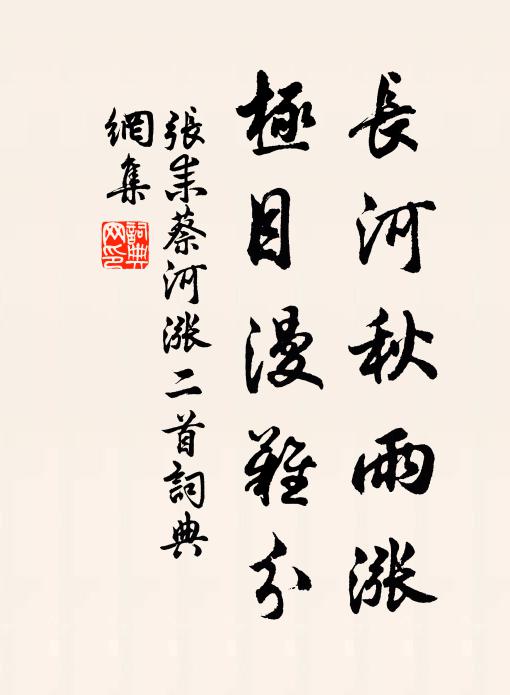 長河秋雨漲
極目漫難分
張耒蔡河漲二首詞典
網集
詞典
网印